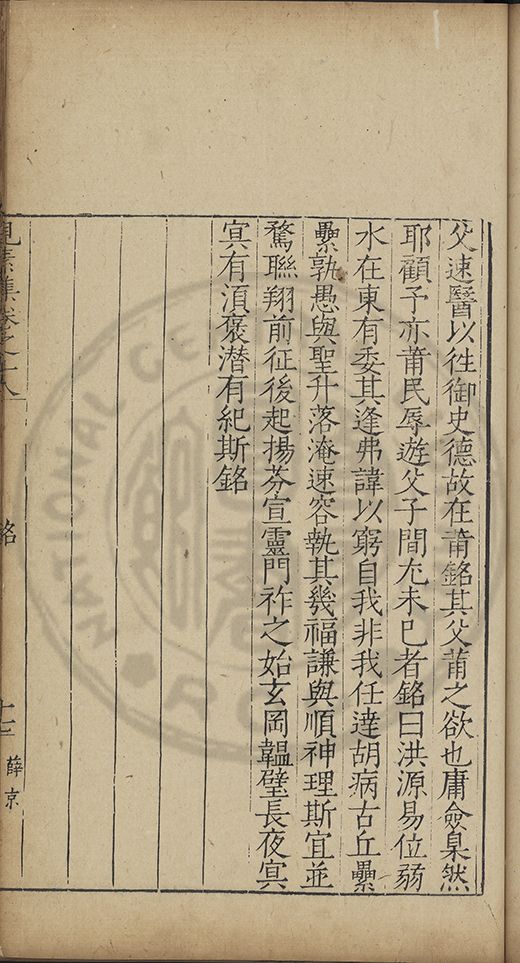 父速醫以徃御史德故在莆銘其父莆之欲也庸僉臬然
耶顧予亦莆民辱遊父子間尤未巳者銘曰洪源易位弱
水在東有委其逢弗諱以窮自我非我任達胡病古丘纍
纍孰愚與聖升落淹速容執其幾福謙與順神理斯宜並
騖聯翔前征後起揚芬宣靈門祚之始玄岡韞璧長夜㝠
㝠有湏褒潜有紀斯銘
見素集卷之十八
銘
十二
薛京